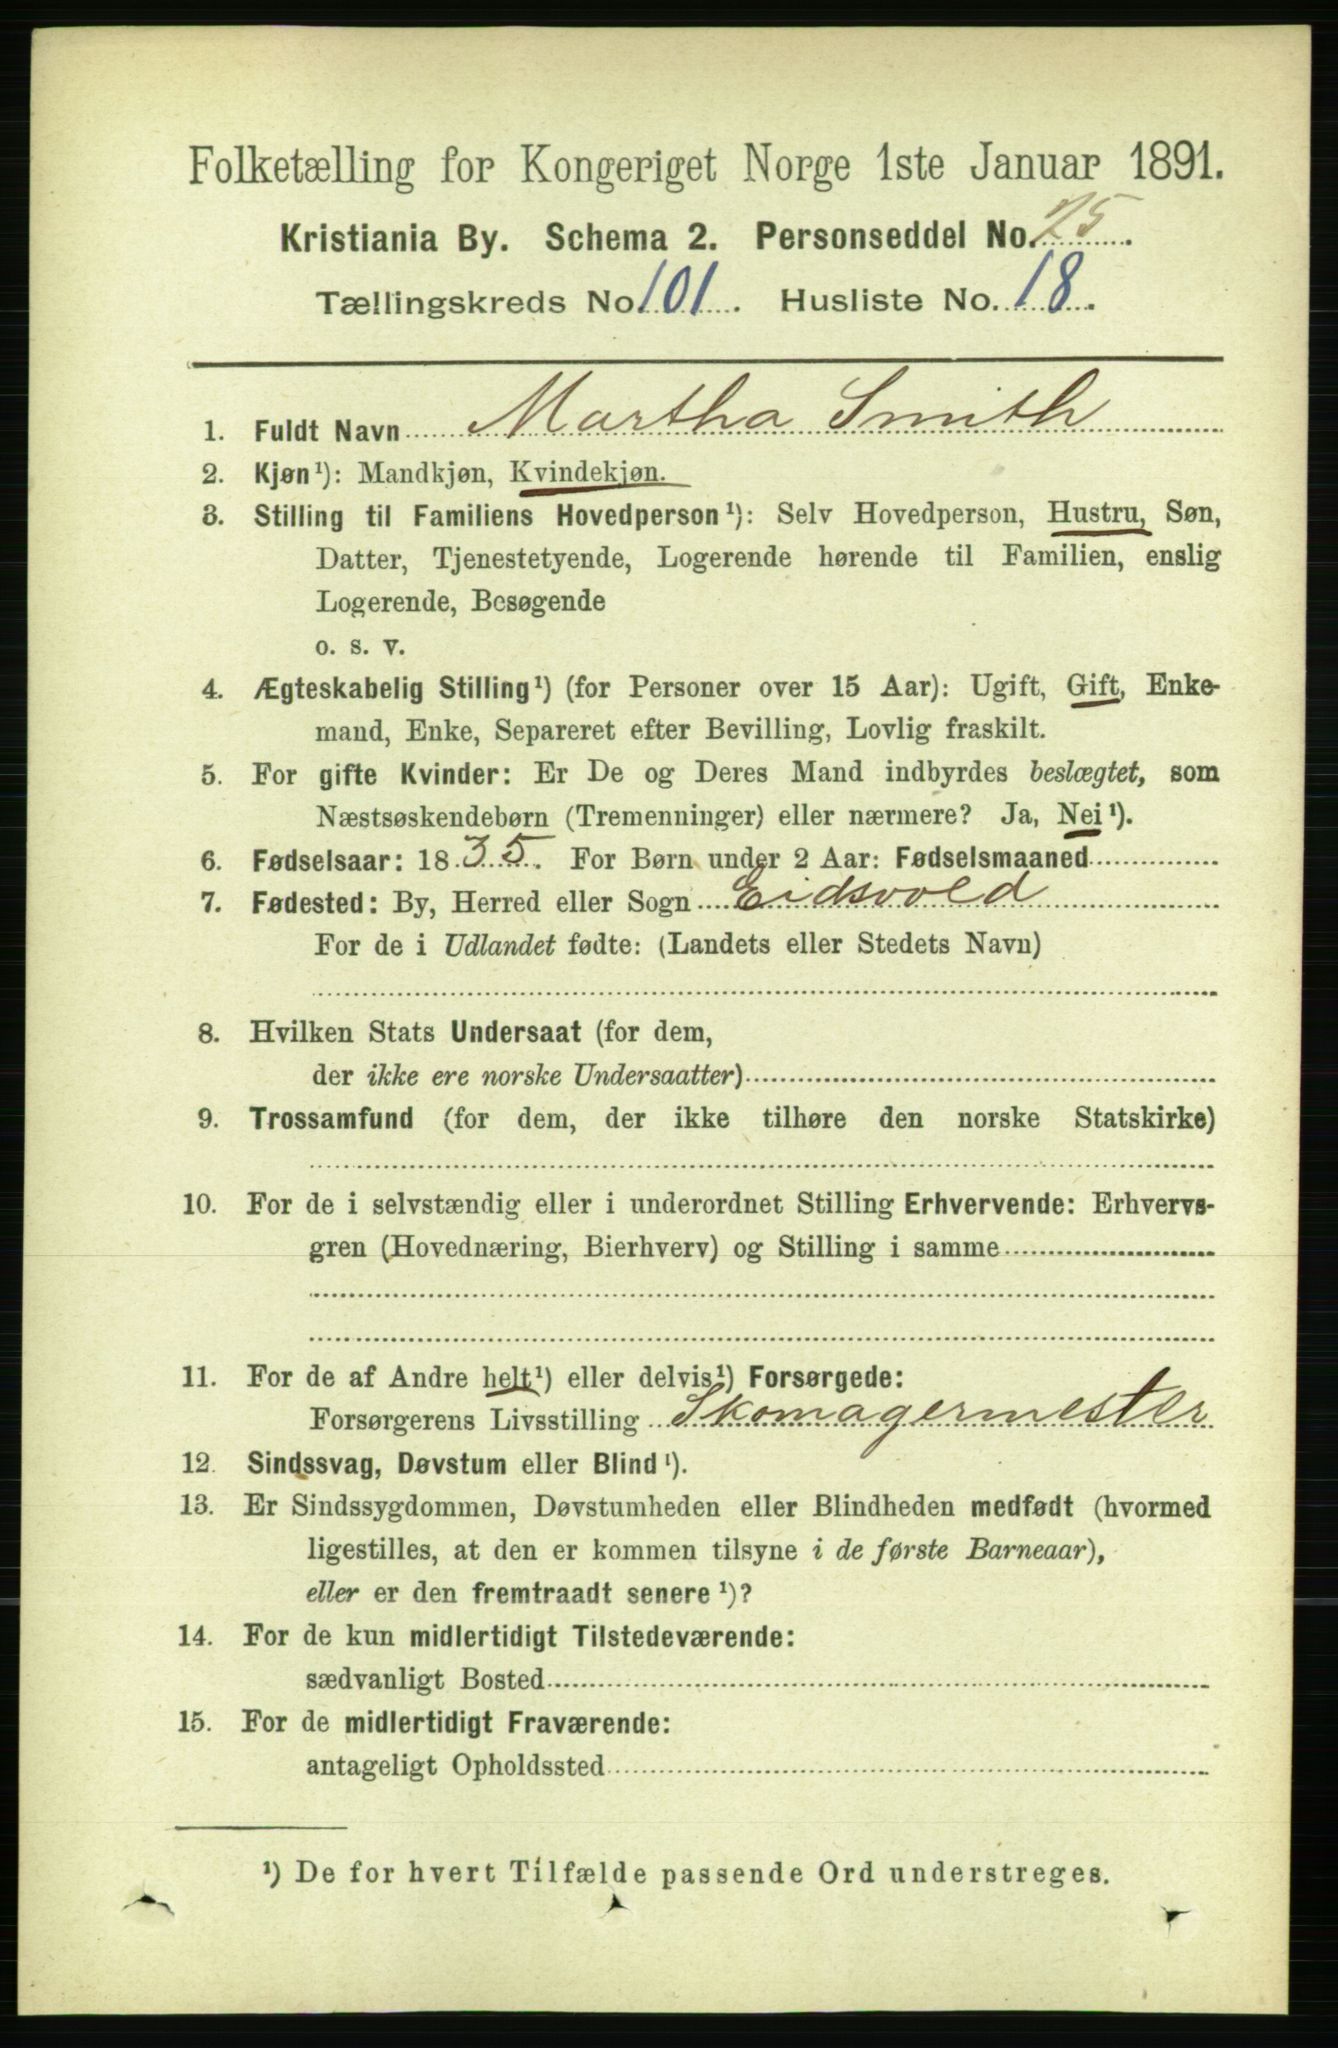 Folketælling for Kongeriget Norge 1ste Januar 1891.
Kristiania By. Schema 2. Personseddel No. 25.
Tællingskreds No. 101. Husliste No. 18.
1. Fuldt Navn Martha Smith
2. Kjøn¹): Mandkjøn, Kvindekjøn.
3. Stilling til Familiens Hovedperson¹): Selv Hovedperson, Hustru, Søn,
Datter, Tjenestetyende, Logerende hørende til Familien, enslig
Logerende, Besøgende
o. s. v.
4. Ægteskabelig Stilling¹) (for Personer over 15 Aar): Ugift, Gift, Enke-
mand, Enke, Separeret efter Bevilling, Lovlig fraskilt.
5. For gifte Kvinder: Er De og Deres Mand indbyrdes beslægtet, som
Næstsøskendebørn (Tremenninger) eller nærmere? Ja, Nei¹).
6. Fødselsaar: 1835. For Børn under 2 Aar: Fødselsmaaned
7. Fødested: By, Herred eller Sogn Eidsvold
For de i Udlandet fødte: (Landets eller Stedets Navn)
8. Hvilken Stats Undersaat (for dem,
der ikke ere norske Undersaatter)
9. Trossamfund (for dem, der ikke tilhøre den norske Statskirke)
10. For de i selvstændig eller i underordnet Stilling Erhvervende: Erhvervs-
gren (Hovednæring, Bierhverv) og Stilling i samme
11. For de af Andre helt¹) eller delvis¹) Forsørgede:
Forsørgerens Livsstilling Skomagermester
12. Sindssvag, Døvstum eller Blind¹).
13. Er Sindssygdommen, Døvstumheden eller Blindheden medfødt (hvormed
ligestilles, at den er kommen tilsyne i de første Barneaar),
eller er den fremtraadt senere¹)?
14. For de kun midlertidigt Tilstedeværende:
sædvanligt Bosted
15. For de midlertidigt Fraværende:
antageligt Opholdssted
¹) De for hvert Tilfælde passende Ord understreges.